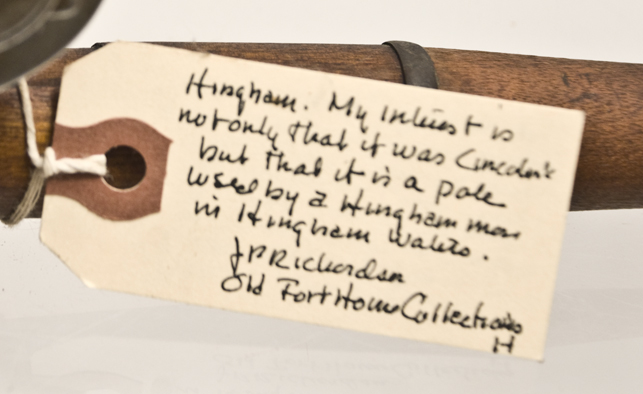 Hingham. My interest is
not only that it was Lincoln's
but that it is a pole
used by a Hingham man
in Hingham waters.
JPRichardson
Old Fort House Collections
H